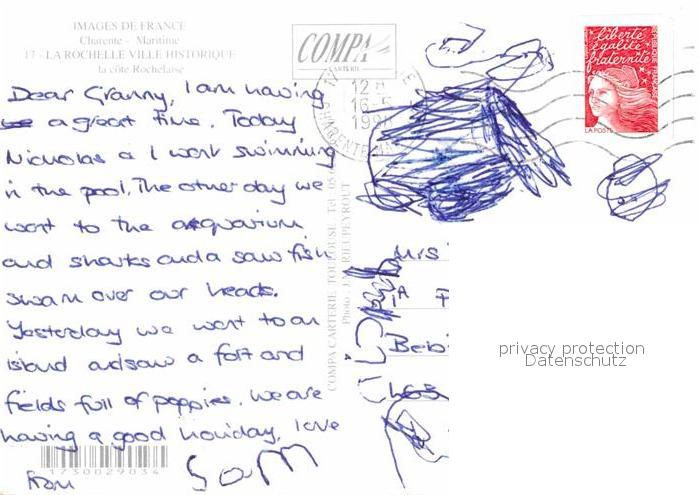 IMAGES DE FRANCE
Charente - Maritime
17 - LA ROCHELLE VILLE HISTORIQUE
la côte Rochelaise
COMPA
CARTERIE
12 H
16-5
CHARENTE MAR
liberté
égalité
fraternité
LA POSTE
Dear Granny, I am having
a great time. Today
Nicholas a I went swimming
in the pool. The other day we
went to the aquarium
and sharks and a saw fish
swam over our heads.
Yesterday we went to an
island and saw a fort and
fields full of poppies. We are
having a good holiday, love
from Sam
1730029034
COMPA CARTERIE TOULOUSE
Photo - J.A. RIEUPEYROUT
Mrs
1A F
Beb
privacy protection
Datenschutz